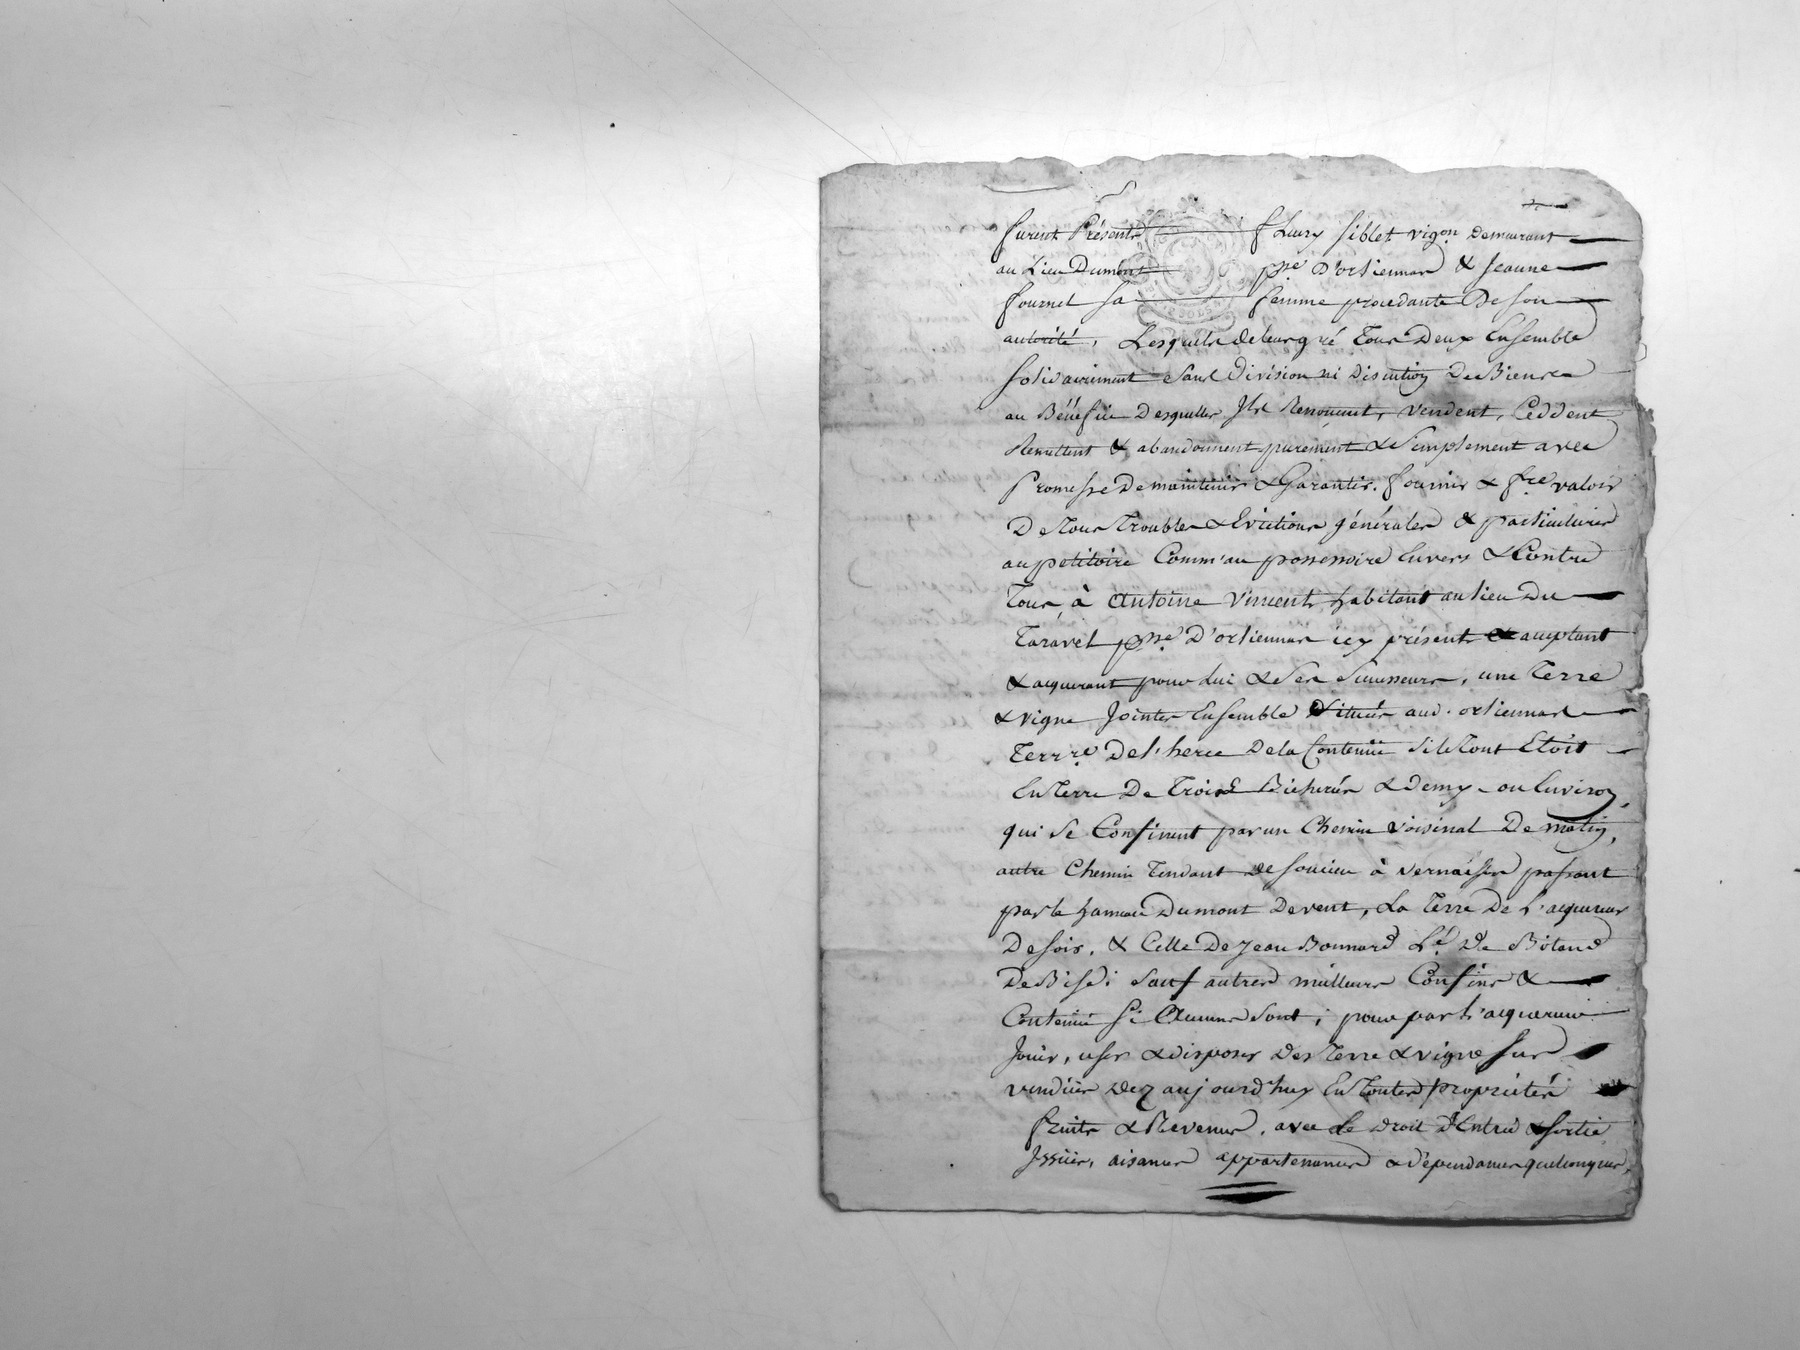 furent Présents fLeury Siblet vigon Demeurant
au Lieu Dumont psse D'orliennas & Jeanne
fournel Sa femme procedante De Son
autorité, Lesquels de leur gré Tous Deux Ensemble
Solidairement Sans Division ni Discution De Biens
au Bénéfice Desquelles Ils Renoncent, vendent, Ceddent
Remettent & abandonnent purement & Simplement avec
Promesse De maintenir & Garantir, fournir & fre valoir
De Tous Troubles & Evictions générales & particulieres
au petitoire Comm'au possessoire Envers & Contre
Tous, à Antoine Vincent habitant au lieu Du
Taravel psse D'orliennas icy présent & acceptant
& acquerant pour Lui & Ses Successeurs, une Terre
& vigne Jointes Ensemble Situés aud. orliennas
Terrre De l'herce De la Contenüe Si le Tout Etoit
En Terre De Trois Bicherées & Demy ou Environ,
qui Se Confinent par un Chemin voisinal De matin,
autre Chemin Tendant de Soucieu à vernaison passant
par le hameau Dumont De vent, La Terre De l'acquereur
De Soir, & Celle De Jean Bonnard Lé De
De Bise; Sauf autres meilleurs Confins &
Contenüe Si Aucuns Sont; pour par L'acquereur
Jouir, user & disposer Des Terre & vigne Sus
vendües Dez aujourd'huy En Toutes propriétés
fruits & Revenus, avec Le Droit D'Entrée & Sortie
Issües, aisances appartenances & Dépendances quelconques,